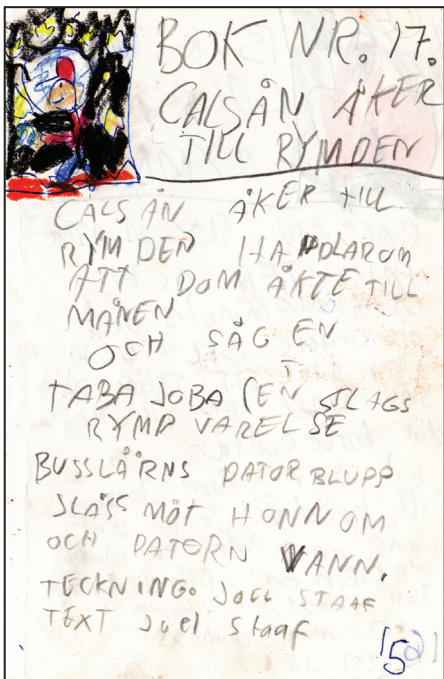 BOK NR. 17.
CALSÅN ÅKER
TILL RYMDEN
CALSÅN ÅKER TILL
RYMDEN HANDLAROM
ATT DOM ÅKTE TILL
MÅNEN
OCH SÅG EN
TABAJOBA (EN SLAGS
RYMDVARELSE
BUSSLÅRNS DATOR BLUPP
SLÅSS MOT HONNOM
OCH DATORN VANN.
TECKNING. JOEL STAAF
TEXT Joel Staaf